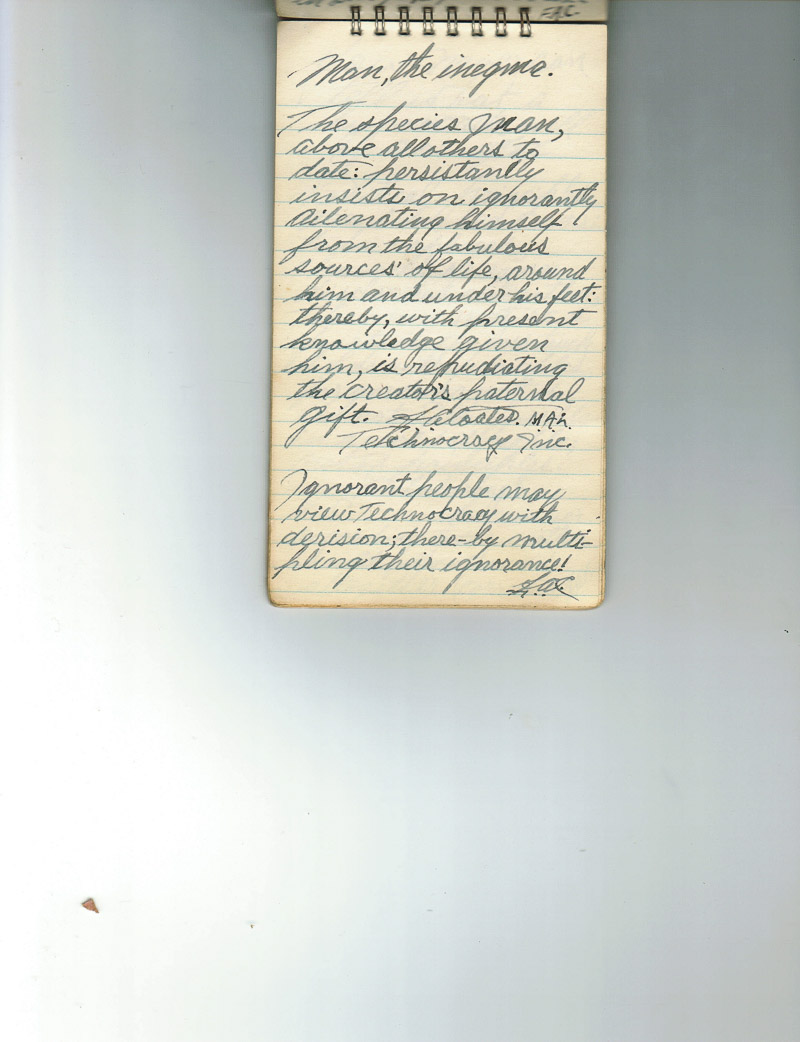 F.A.C.
Man, the inegma.
The species man,
above all others to
date: persistantly
insists on ignorantly
ailenating himself
from the fabulous
sources' of life, around
him and under his feet:
thereby, with present
knowledge given
him, is repudiating
the creator's paternal
gift.
Technocracy Inc.
Ignorant people may
view Technocracy with
derision; there-by multi-
pling their ignorance!